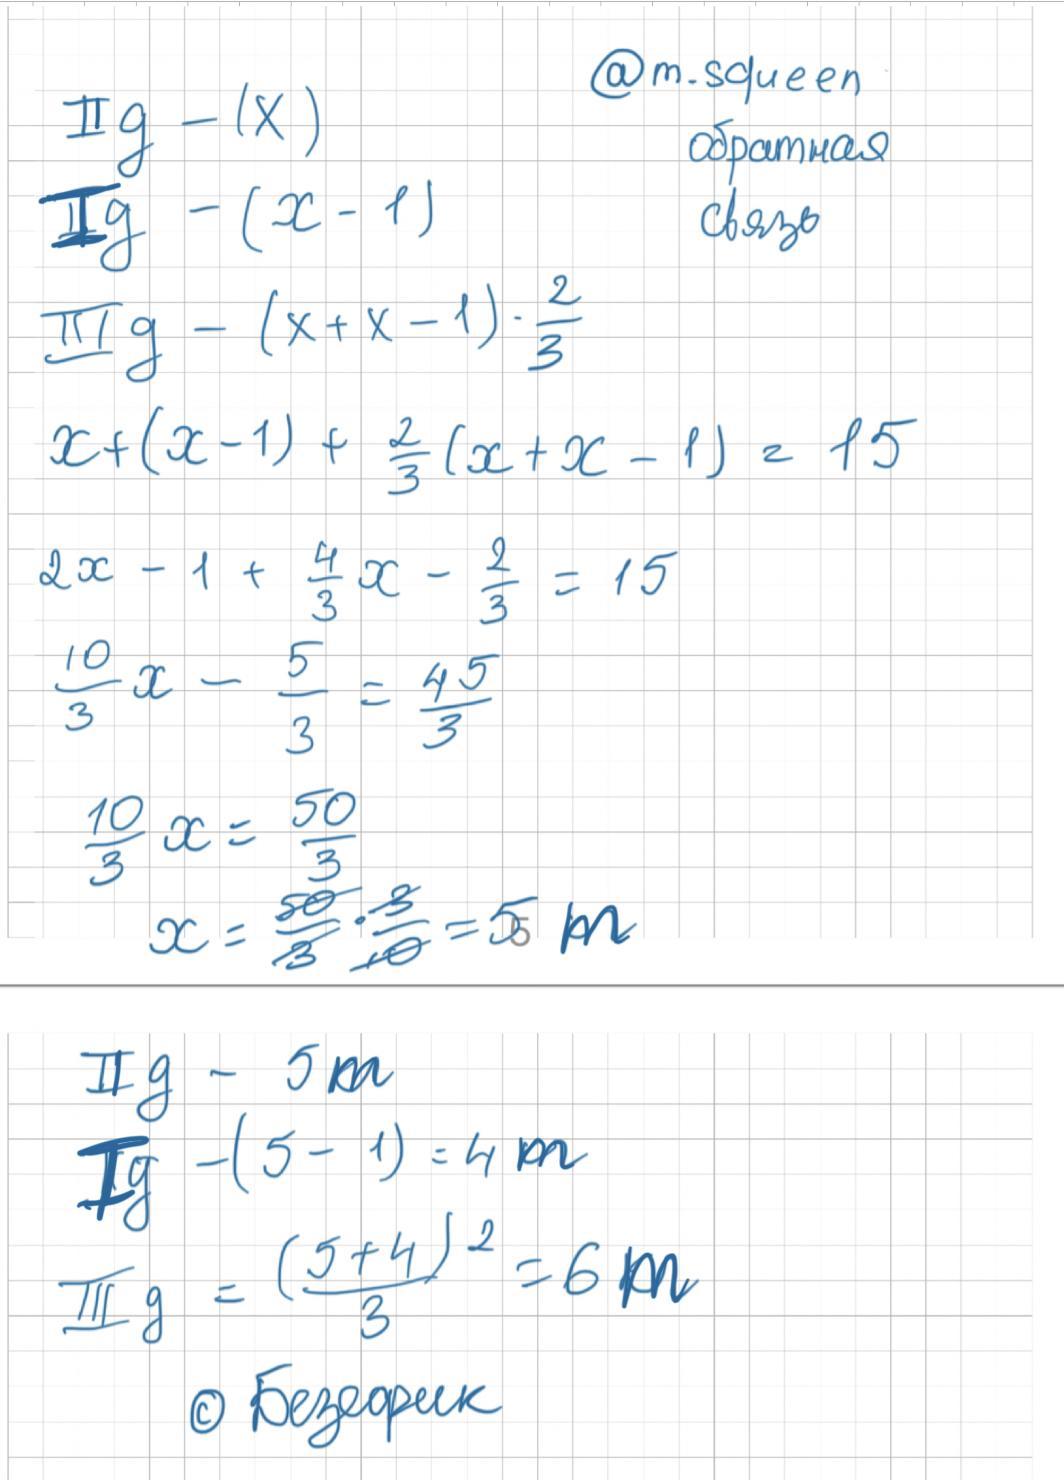 @m.squeen
обратная
связь
II g - (x)
I g - (x - 1)
III g - (x + x - 1) · 2/3
x + (x - 1) + 2/3 (x + x - 1) = 15
2x - 1 + 4/3 x - 2/3 = 15
10/3 x - 5/3 = 45/3
10/3 x = 50/3
x = 50/3 · 3/10 = 5 т
5
II g - 5 т
I g - (5 - 1) = 4 т
III g = (5 + 4) 2 / 3 = 6 т